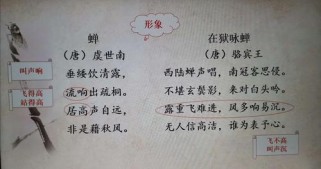 形象
蝉
（唐）虞世南
垂緌饮清露，
流响出疏桐。
居高声自远，
非是藉秋风。
叫声响
飞得高
站得高
在狱咏蝉
（唐）骆宾王
西陆蝉声唱，南冠客思侵。
不堪玄鬓影，来对白头吟。
露重飞难进，风多响易沉。
无人信高洁，谁为表予心。
飞不高
叫声沉